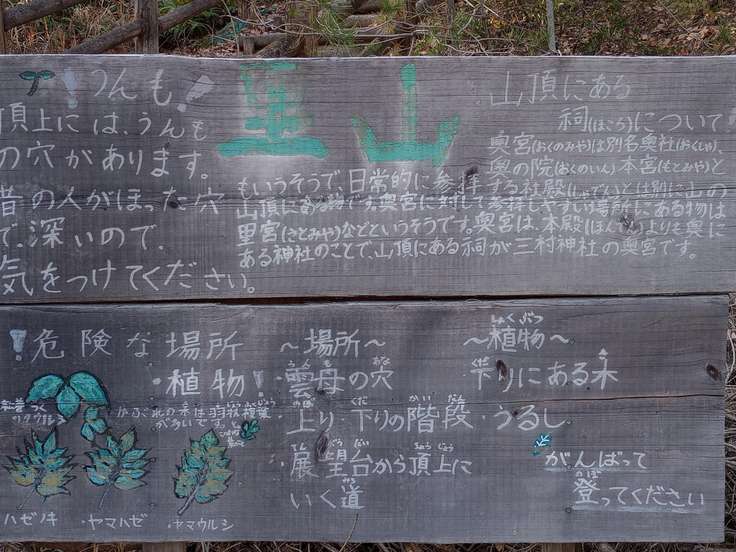 うんも!
頂上には、うんも
の穴があります。
昔の人がほった穴
で、深いので、
気をつけてください。
里山
山頂にある
祠(ほこら)について!
奥宮(おくのみや)は別名奥社(おくしゃ)、
奥の院(おくのいん)本宮(もとみや)と
もいうそうで、日常的に参拝する社殿(しゃでん)とは別に山の
山頂にある物です。奥宮に対して参拝しやすい場所にある物は
里宮(さとみや)などというそうです。奥宮は、本殿(ほんでん)よりも奥に
ある神社のことで、山頂にある祠が三村神社の奥宮です。
!危険な場所
・植物!
かぶれの木は羽状複葉
が多いです。
ツタウルシ
ハゼノキ
・ヤマハゼ
・ヤマウルシ
〜場所〜
・雲母の穴
上り・下りの階段
・展望台から頂上に
いく道
〜植物〜
下りにある木
・うるし
がんばって
登ってください